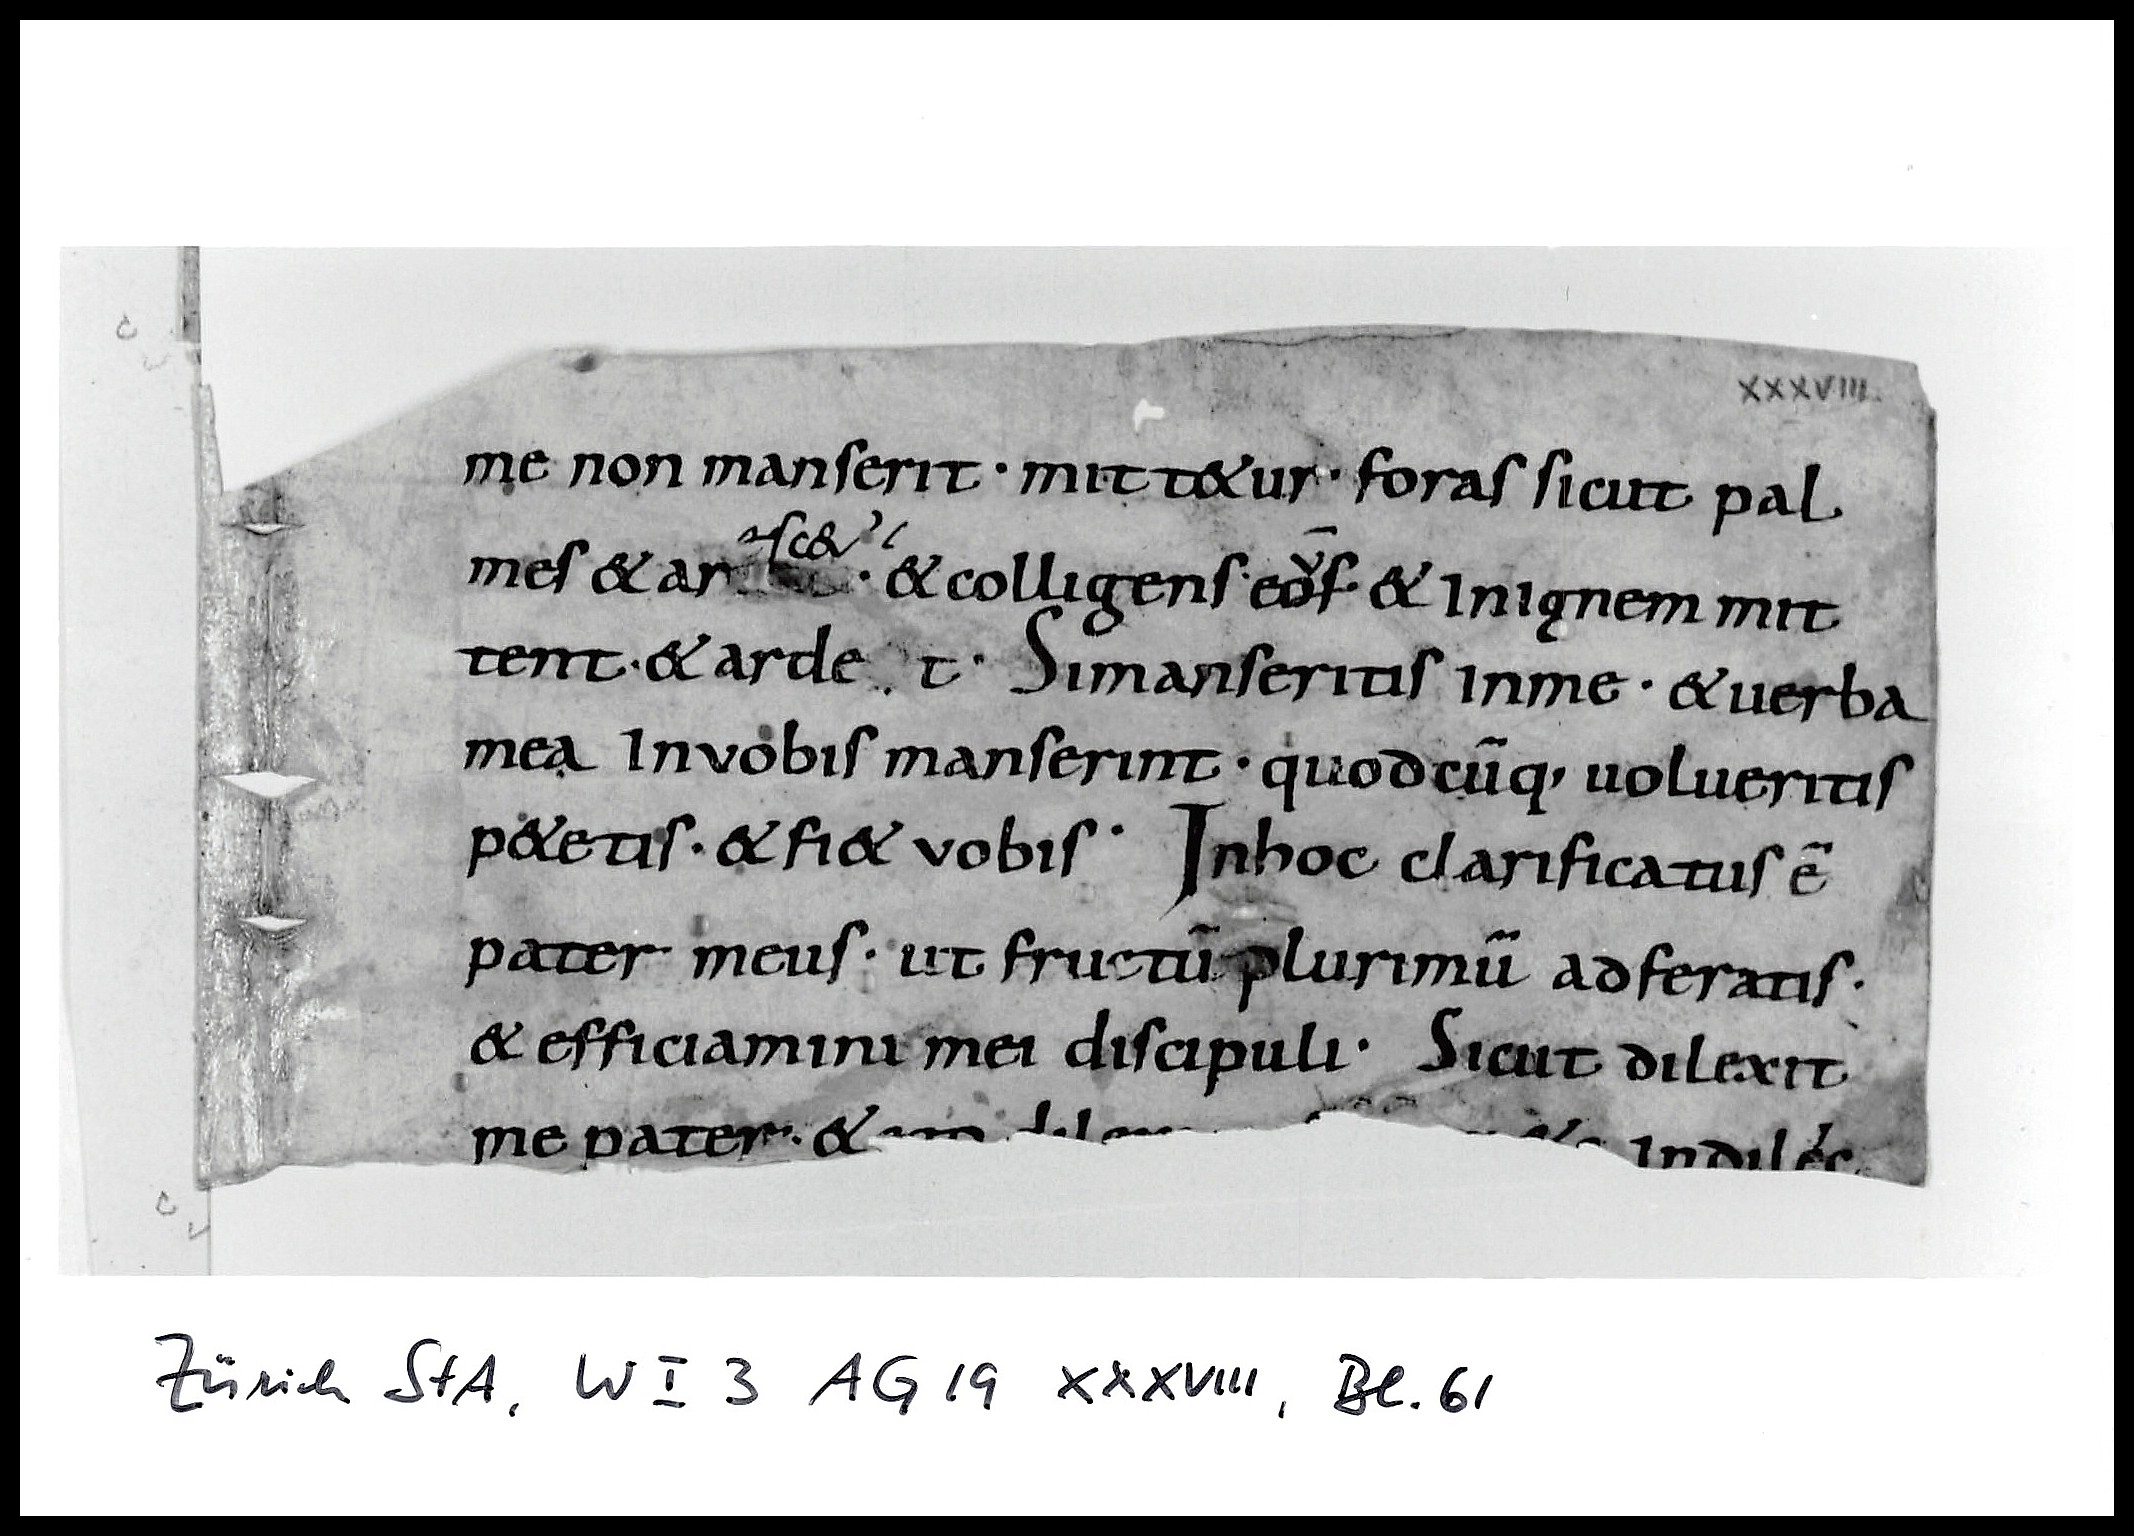 XXXVIII.
me non manſerit · mitt&ur · foraſ ſicut pal
meſ & ar · & colligenſ · eoſ & In ignem mit
tent · & arde t · Si manſeritiſ In me · & uerba
mea In vobiſ manſerint · quodcūq, uolueritiſ
p&etiſ · & fi& vobiſ · In hoc clarificatuſ ē
pater meuſ · ut fructū plurimū adferatiſ ·
& efficiamini mei diſcipuli · Sicut dilexit
me pater · & In dilec
Zürich StA, W I 3 AG 19 XXXVIII, Bl. 61